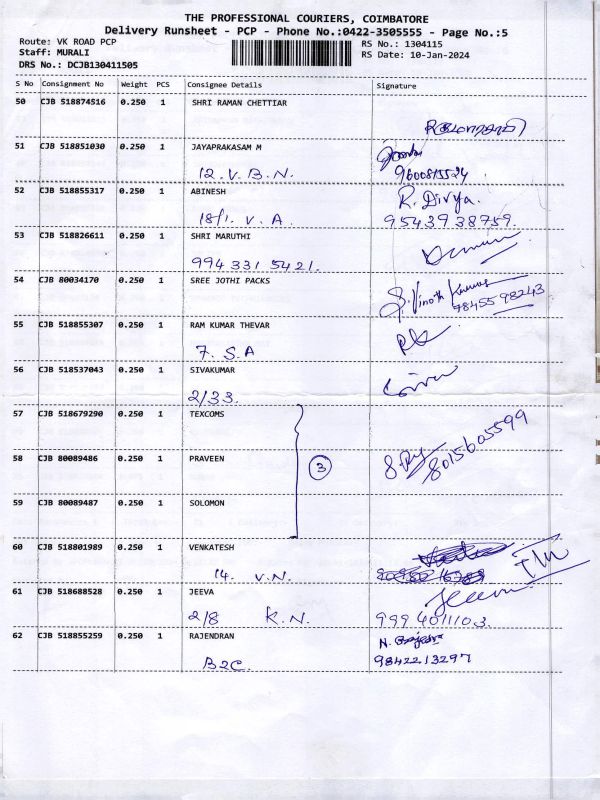 THE PROFESSIONAL COURIERS, COIMBATORE
Delivery Runsheet - PCP - Phone No.:0422-3505555 - Page No.:5
Route: VK ROAD PCP
RS No.: 1304115
Staff: MURALI
RS Date: 10-Jan-2024
DRS No.: DCJB130411505
S No Consignment No Weight PCS Consignee Details Signature
50 CJB 518874516 0.250 1 SHRI RAMAN CHETTIAR
51 CJB 518851030 0.250 1 JAYAPRAKASAM M
12. V. B. N.
52 CJB 518855317 0.250 1 ABINESH R. Divya.
18/1. V. A. 9543938759.
53 CJB 518826611 0.250 1 SHRI MARUTHI
994 331 5421.
54 CJB 80034170 0.250 1 SREE JOTHI PACKS
S. Vinoth Kumar
78455 98243
55 CJB 518855307 0.250 1 RAM KUMAR THEVAR
7. S. A
56 CJB 518537043 0.250 1 SIVAKUMAR
2/33.
57 CJB 518679290 0.250 1 TEXCOMS
58 CJB 80089486 0.250 1 PRAVEEN 3 8015605599
59 CJB 80089487 0.250 1 SOLOMON
60 CJB 518801989 0.250 1 VENKATESH
14. V.N.
61 CJB 518688528 0.250 1 JEEVA Jeeva
2/8 K.N. 999 4011103.
62 CJB 518855259 0.250 1 RAJENDRAN N. Rajendra
B2C. 9842213297